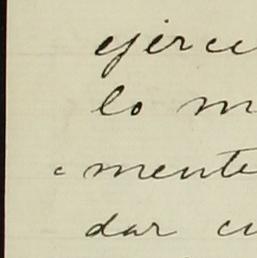 ejerce
lo m
mente
dar cu